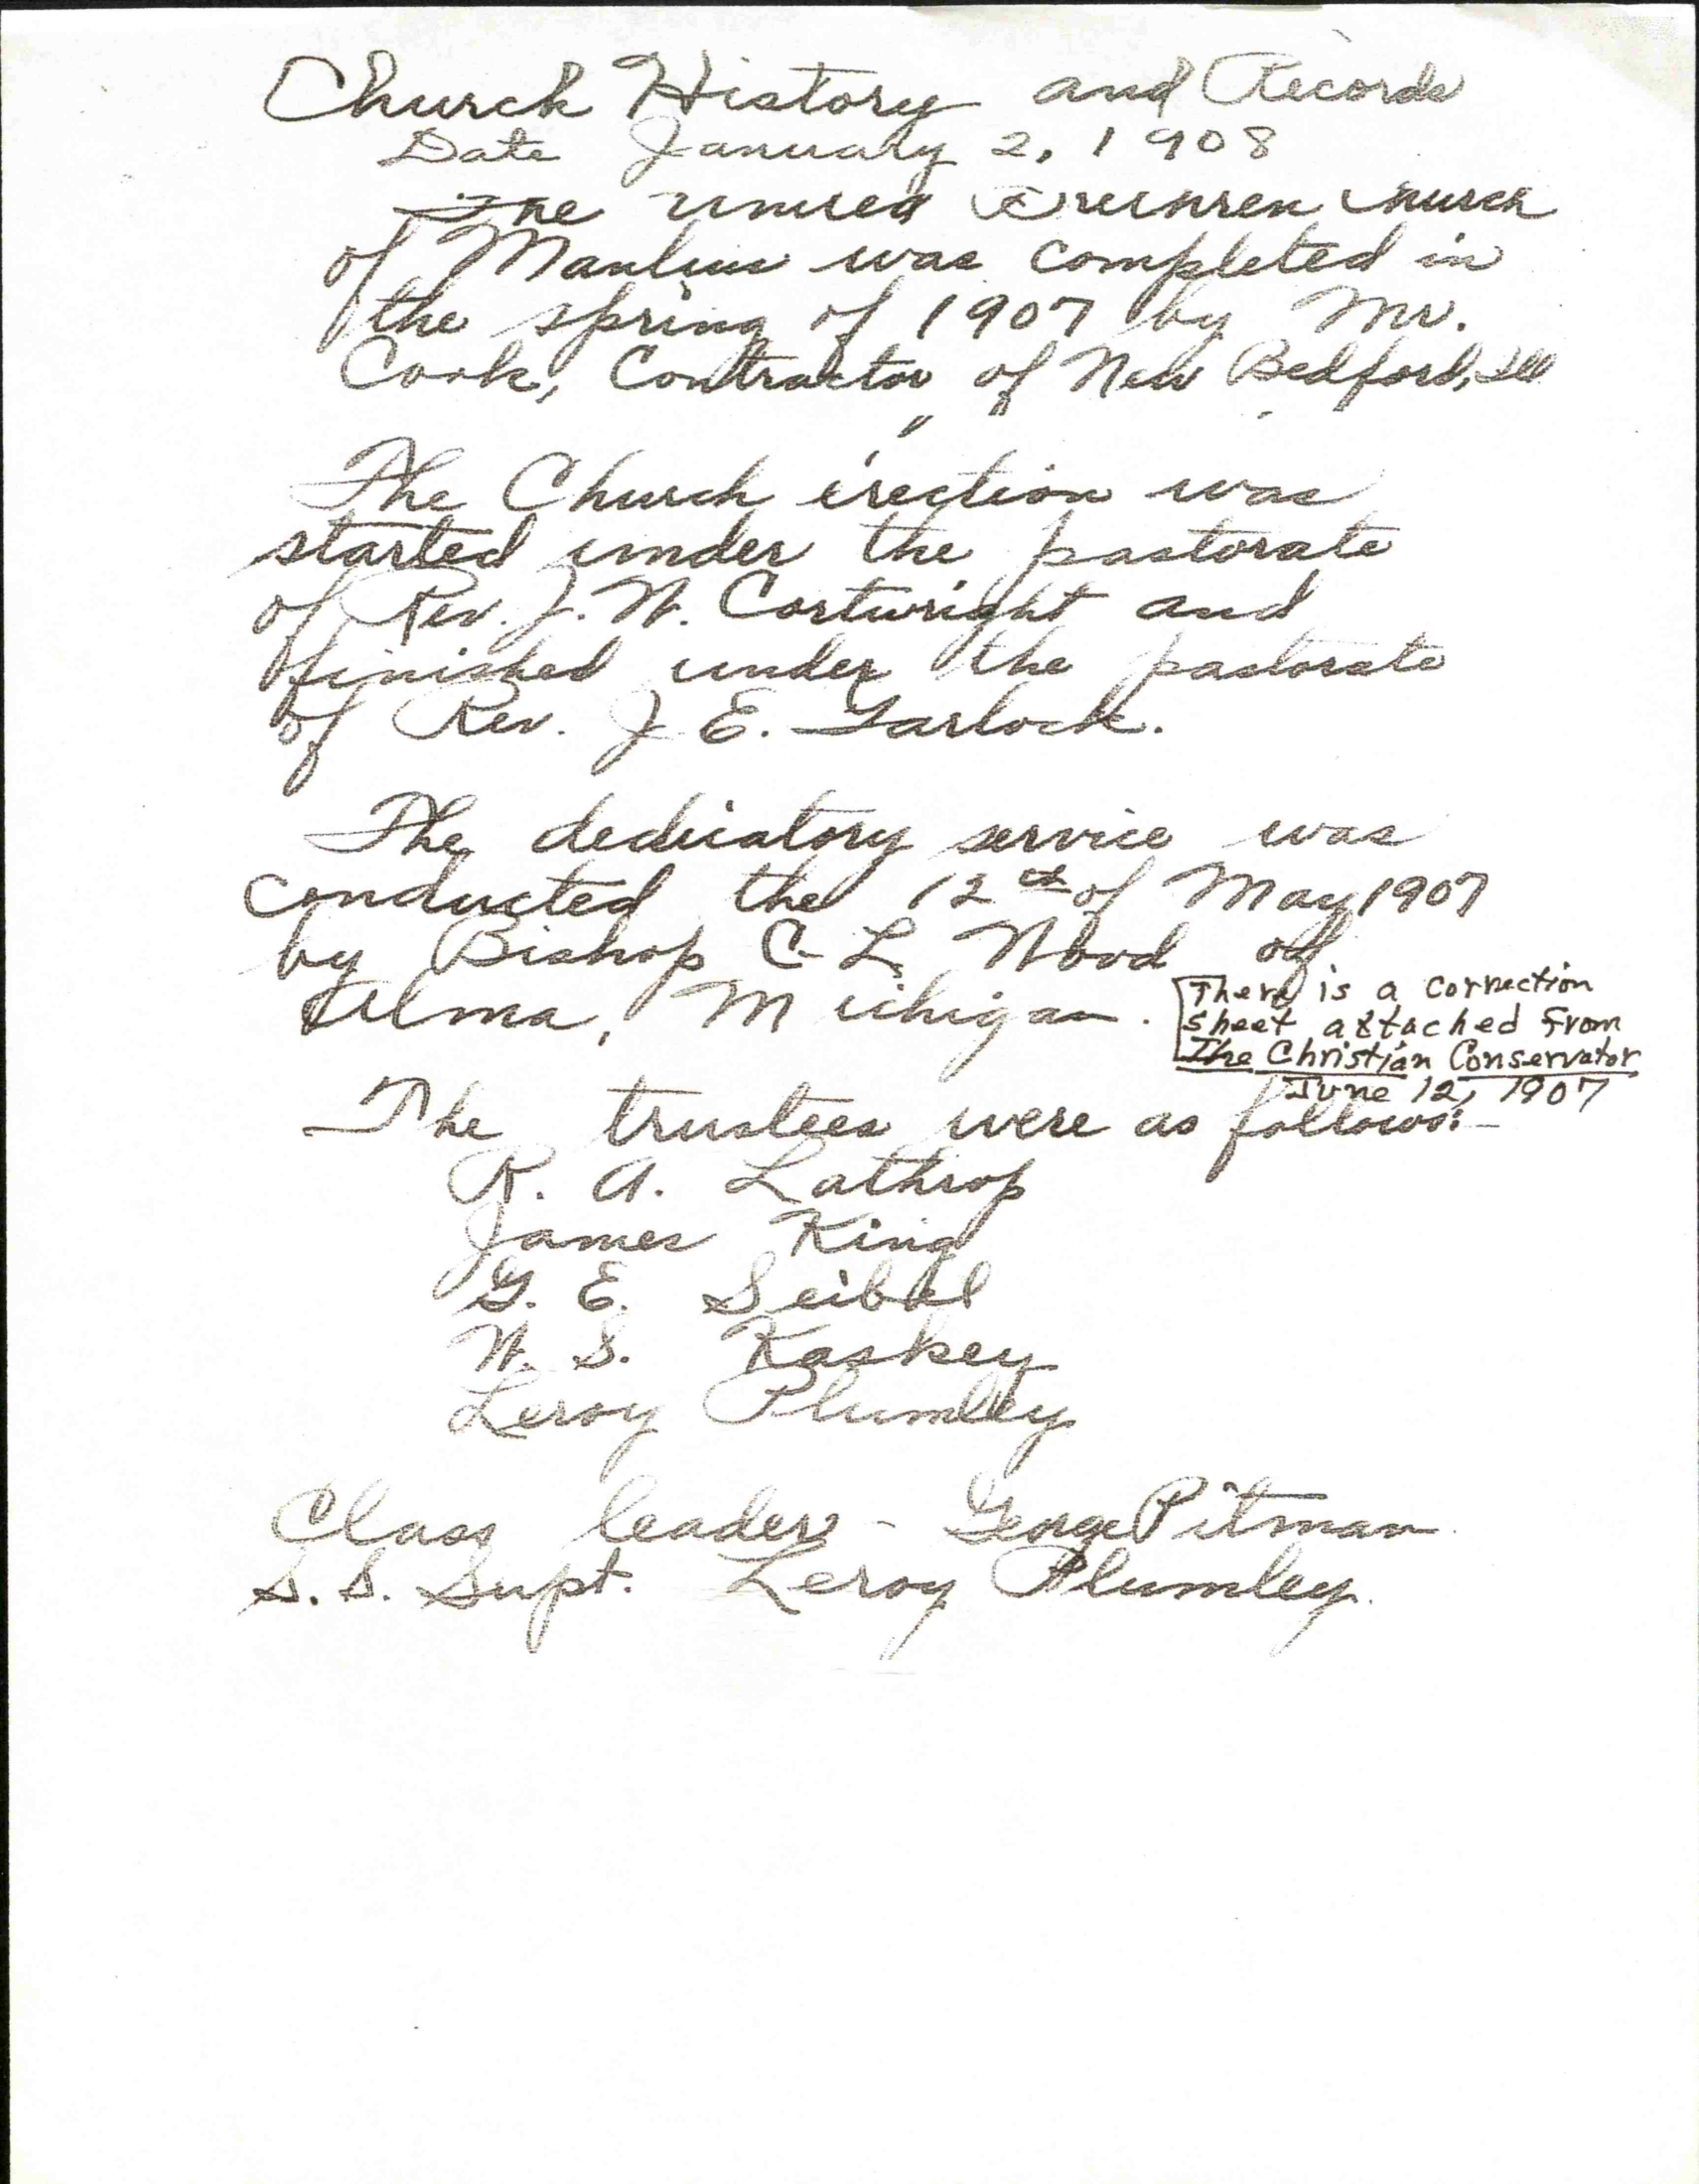 Church History and Records
Date January 2, 1908
The United Brethren Church
of Manlius was completed in
the spring of 1907 by Mr.
Cook, Contractor of New Bedford, Ill
" "
The Church erection was
started under the pastorate
of Rev. J. W. Cortwright and
finished under the pastorate
of Rev. J E. Garlock.
The dedicatory service was
conducted the 12th of May 1907
by Bishop C. L. Wood of
Alma, Michigan.
There is a correction
sheet attached from
The Christian Conservator
June 12, 1907
The trustees were as follows:-
R. A. Lathrop
James King
G. E. Seibel
W. S. Kaskey
Leroy Plumley
Class leader - George Pitman
S. S. Supt. Leroy Plumley.